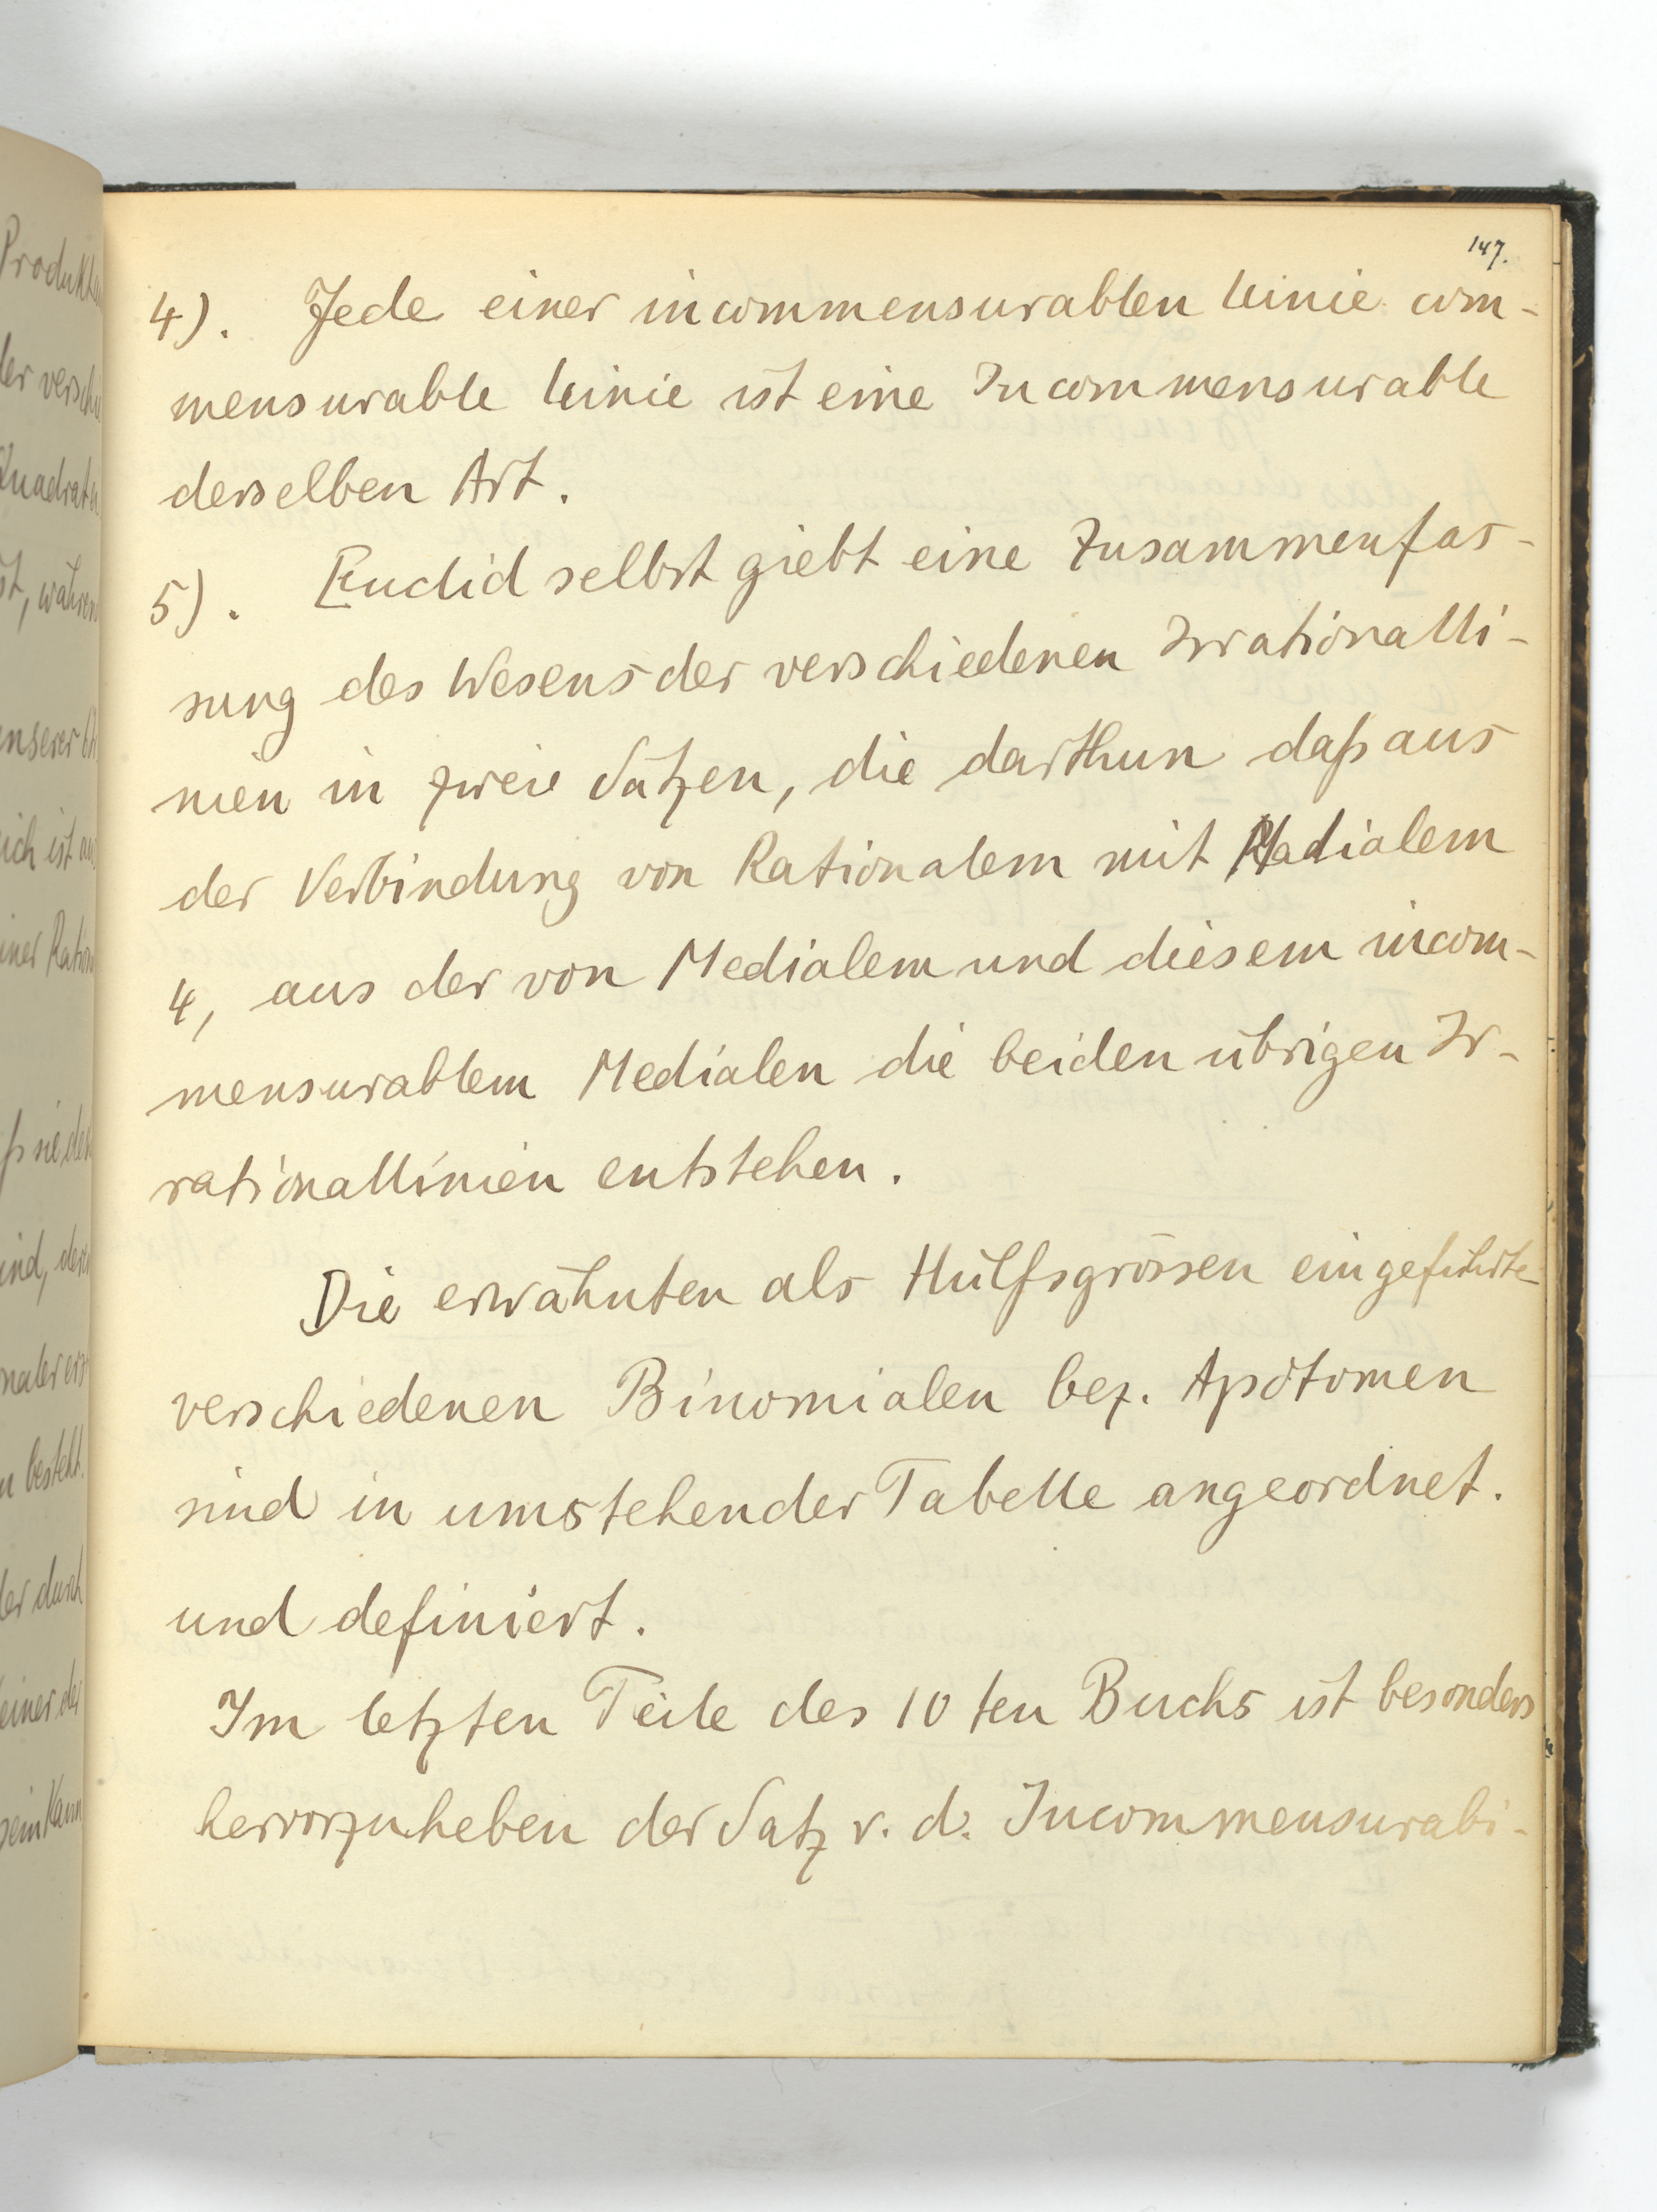 147.
4). Jede einer incommensurablen Linie com-
mensurable Linie ist eine Incommensurable
derselben Art.
5). Euclid selbst giebt eine Zusammenfas-
sung des Wesens der verschiedenen Irrationalli-
nien in zweie Sätzen, die darthun daß aus
der Verbindung von Rationalem mit Medialem
4, aus der von Medialem und diesem incom-
mensurablem Medialen die beiden übrigen Ir-
rationallinien entstehen.
Die erwähnten als Hülfsgrössen eingeführte
verschiedenen Binomialen bez. Apotomen
sind in umstehender Tabelle angeordnet.
und definiert.
Im letzten Teile des 10 ten Buchs ist besonders
hervorzuheben der Satz v. d. Incommensurabi-